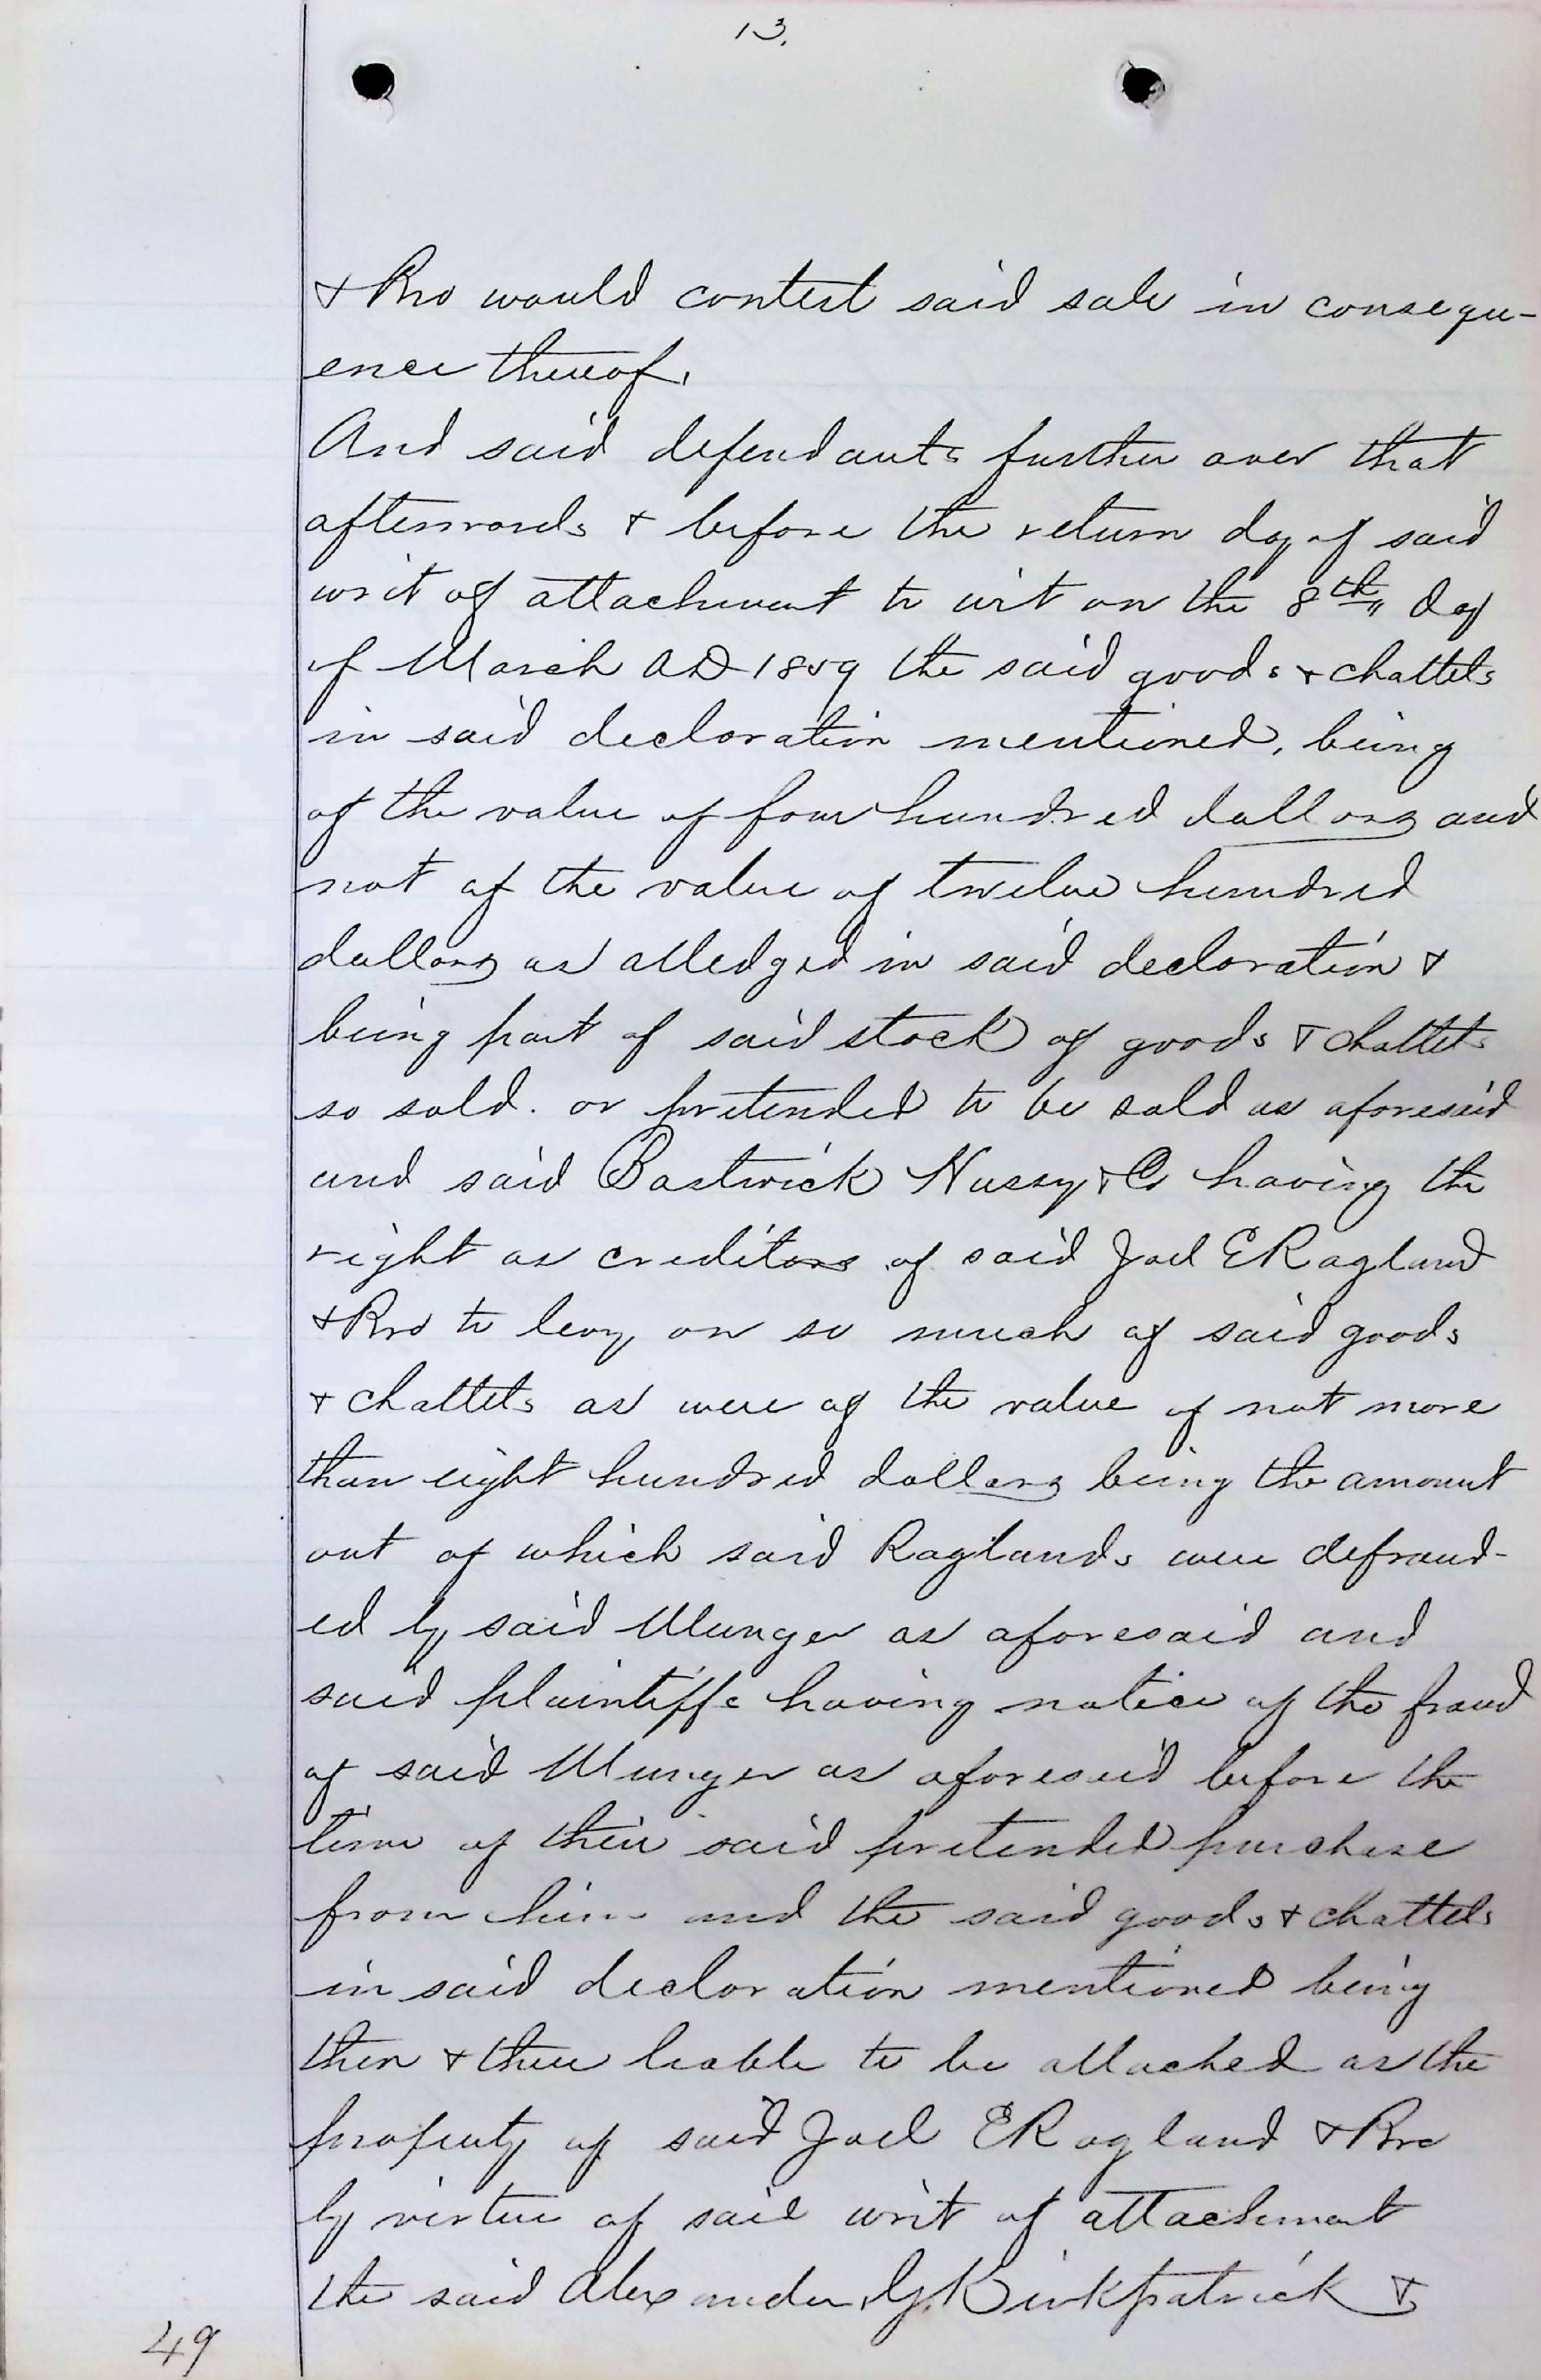 13.
& Bro would contest said sale in consequ-
ence thereof.
And said defendants further aver that
afterwards & before the return day of said
writ of attachment to wit on the 8th day
of March AD 1859 the said goods & chattels
in said declaration mentioned, being
of the value of four hundred dollars and
not of the value of twelve hundred
dollars as alledged in said declaration &
being part of said stock of goods & chattels
so sold. or pretended to be sold as aforesaid
and said Bostwick Hussy & Co having the
right as creditors of said Joel E Ragland
& Bro to levy on so much of said goods
& chattels as were of the value of not more
than eight hundred dollars being the amount
out of which said Raglands were defraud-
ed by said Munger as aforesaid and
said plaintiffs having notice of the fraud
of said Munger as aforesaid before the
time of their said pretended purchase
from him and the said goods & chattels
in said declaration mentioned being
then & there liable to be attached as the
property of said Joel E Ragland & Bro
by virtue of said writ of attachment
the said Alexander G. Kirkpatrick &
49